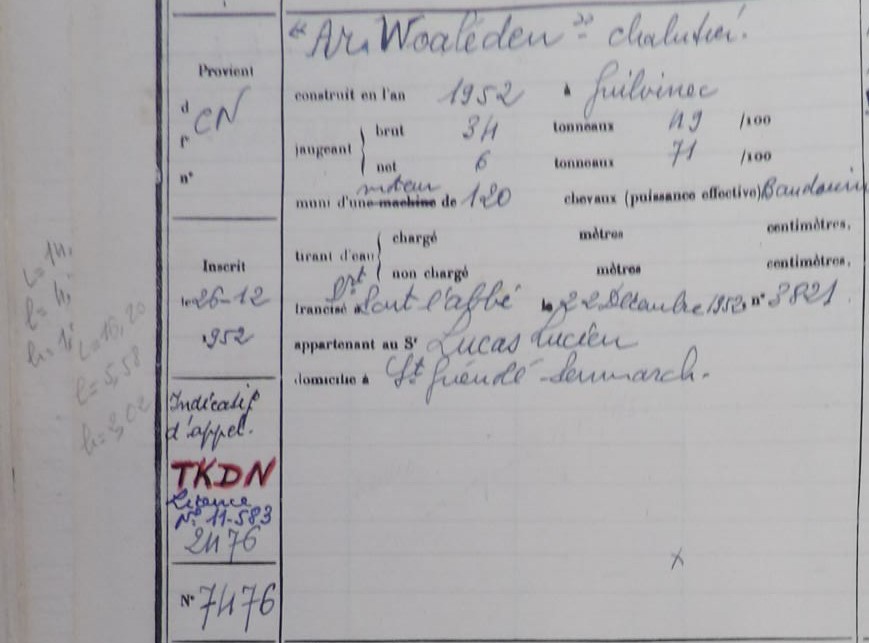 "Ar. Woaleden" chalutier.
Provient
d CN
r
n°
construit en l'an 1952 à Guilvinec
jaugeant
brut 34 tonneaux 49 /100
net 6 tonneaux 71 /100
moteur
muni d'une machine de 120 chevaux (puissance effective) Baudouin
tirant d'eau
chargé mètres centimètres,
non chargé mètres centimètres,
Inscrit
le 26-12
1952
francisé à Pont l'abbé le 22 Décembre 1952, n° 3821
appartenant au Sr Lucas Lucien
domicilié à St Guénolé-Penmarch.
L= 16,20
l= 5,58
h= 3,02
Indicatif
d'appel.
TKDN
Licence
N° 11-583
2476
N° 7476
x